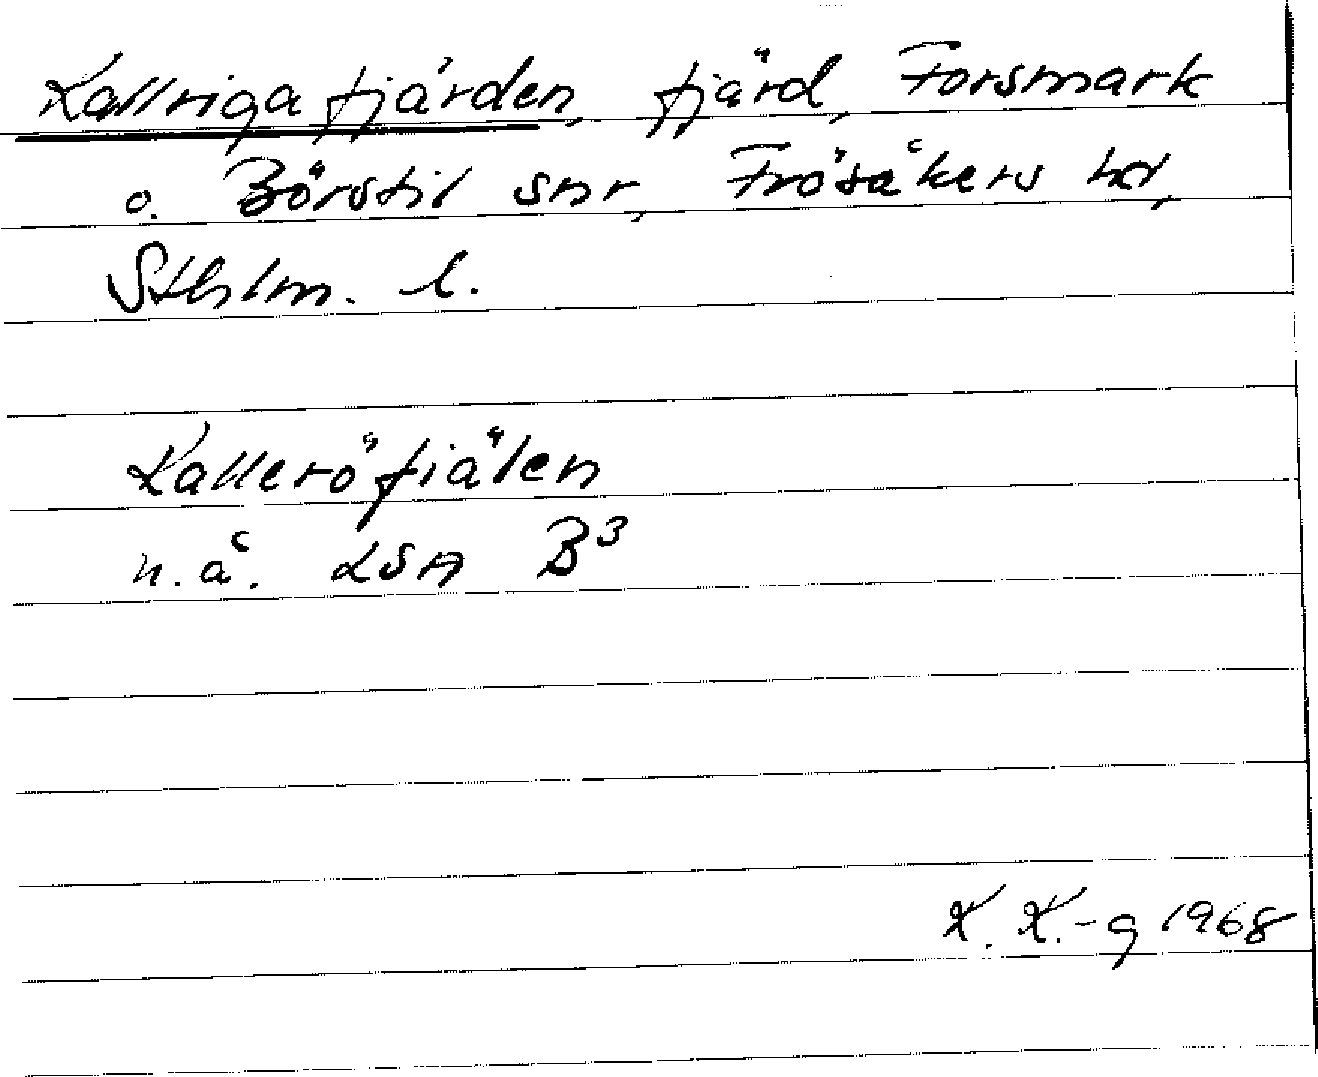 Kallrigafjärden, fjärd, Forsmark
o. Börstil snr, Frösåkers hd,
Sthlm. l.
Kalleröfiälen
n.å. LSA B³
K. K.-g 1968